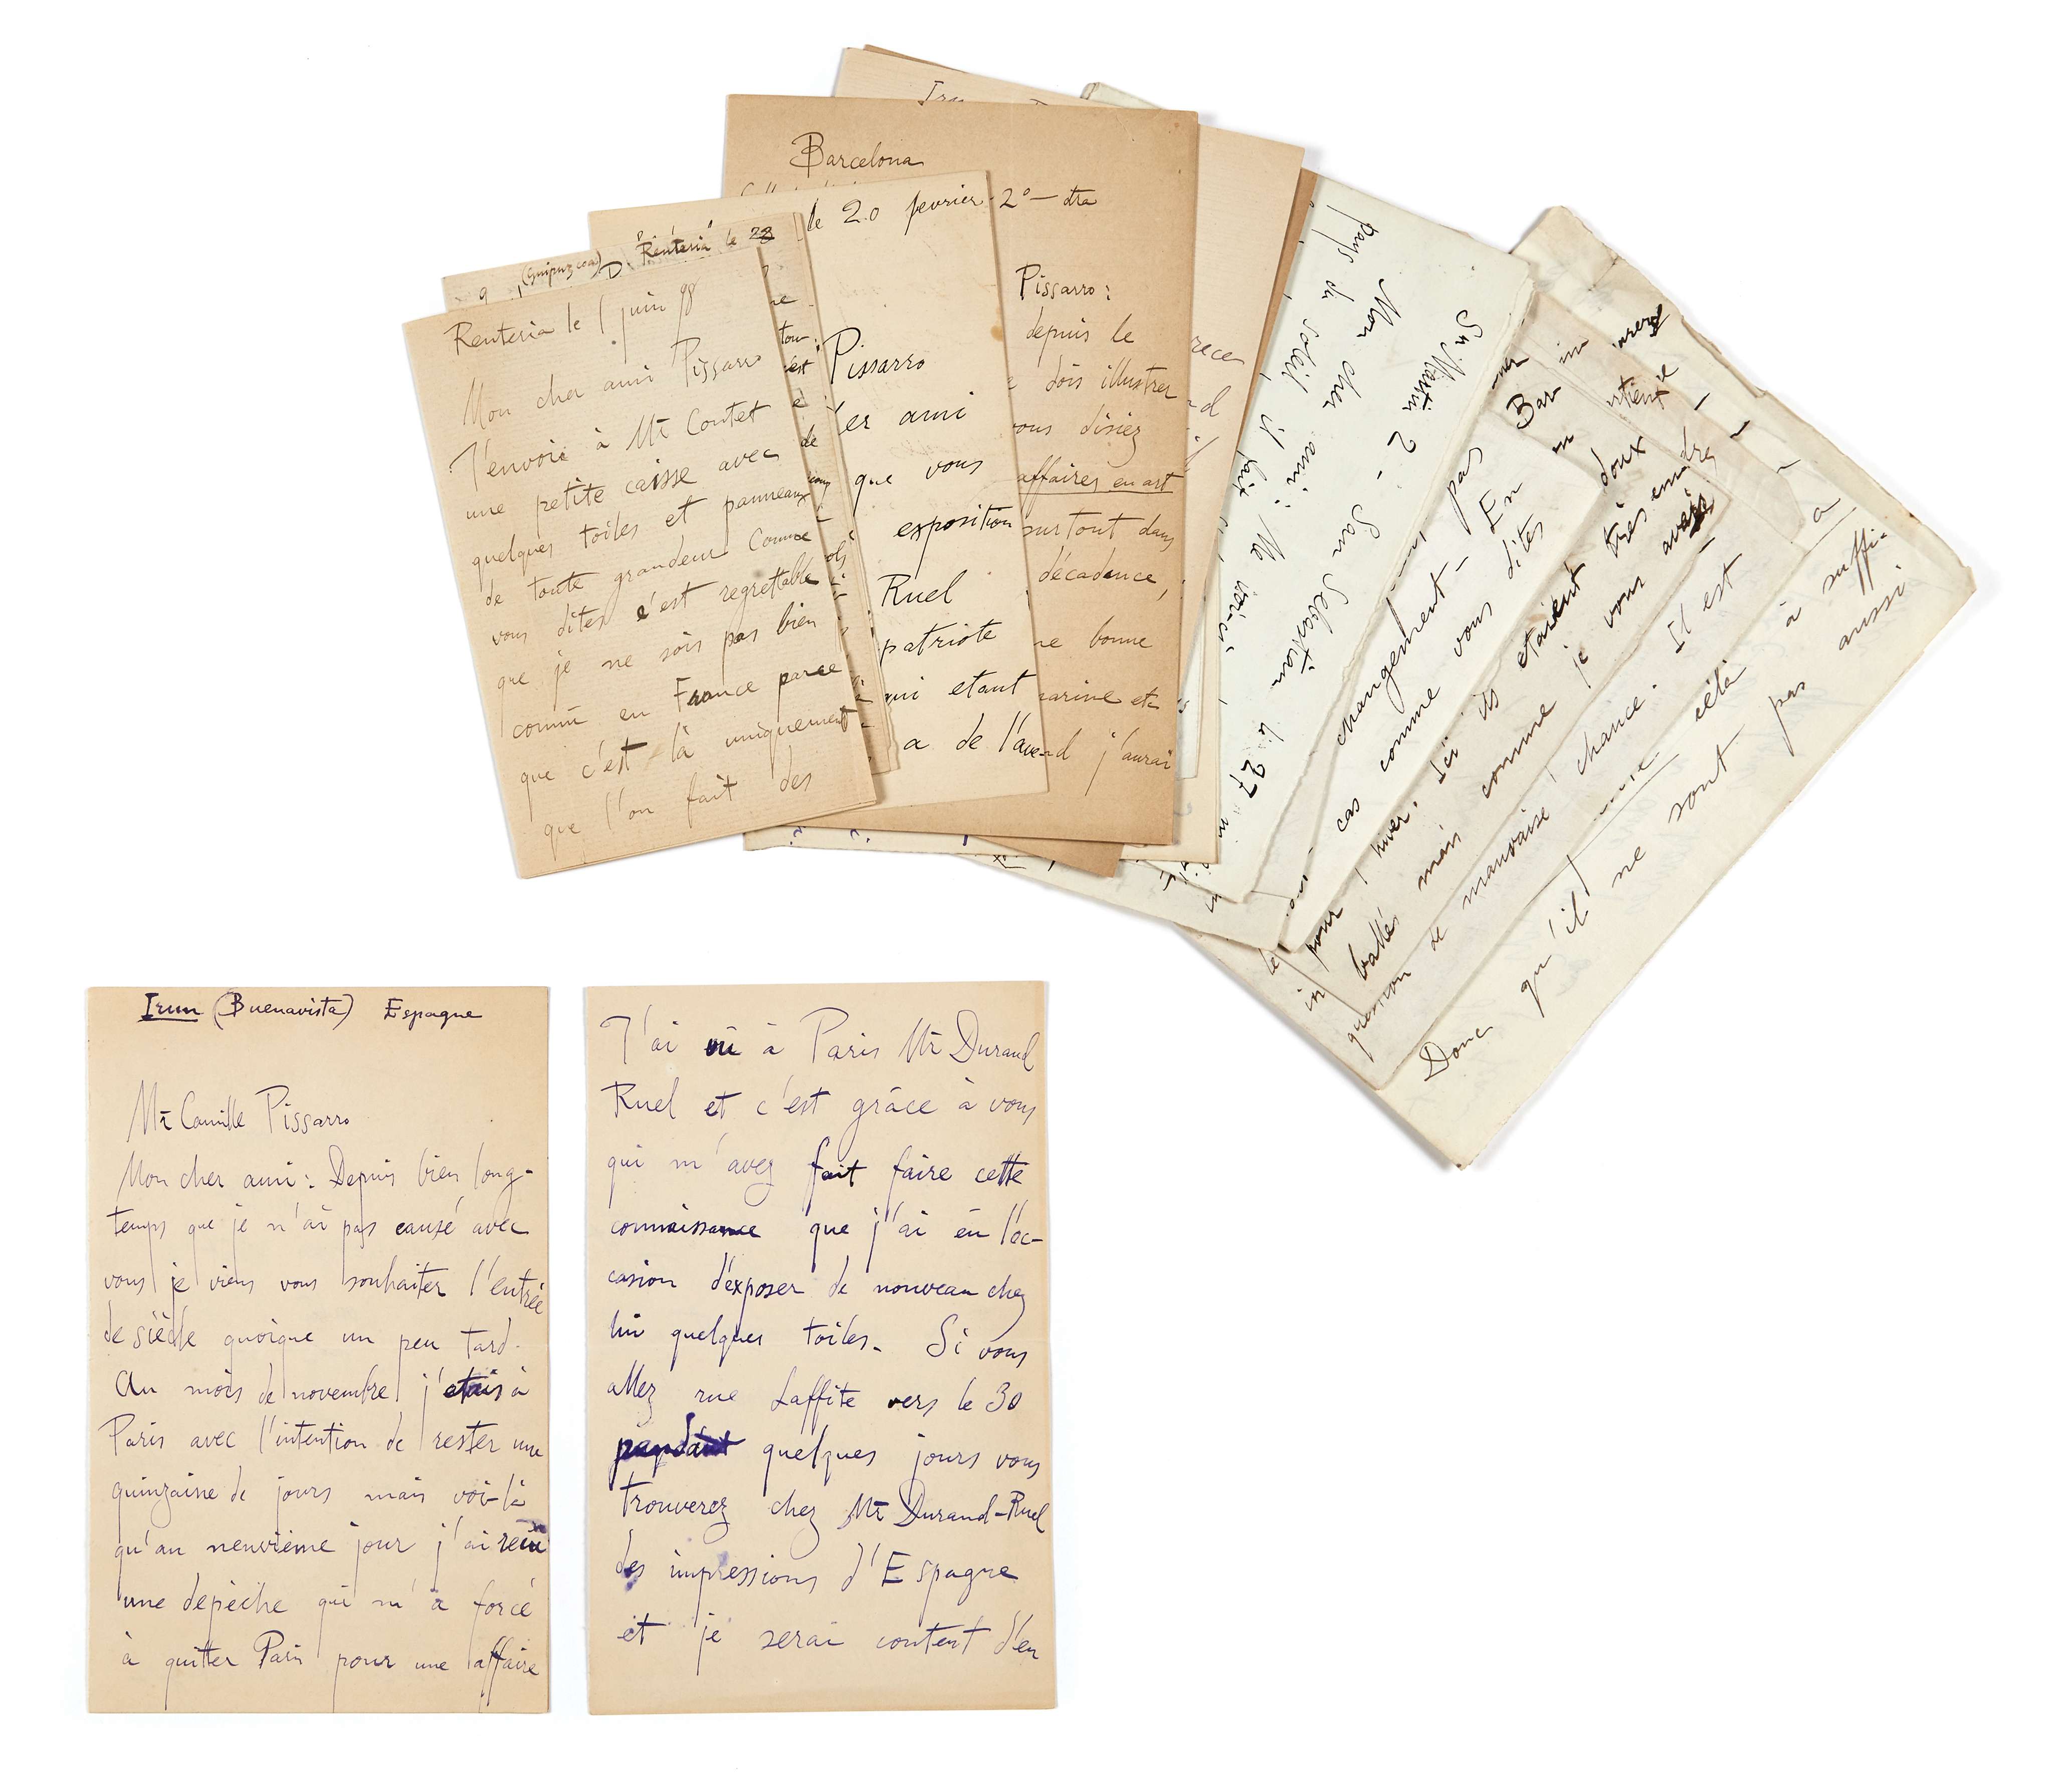 Irun (Buenavista) Espagne
Mr Camille Pissarro
Mon cher ami: Depuis bien long-
temps que je n'ai pas causé avec
vous je viens vous souhaiter l'entrée
de siècle quoique un peu tard.
Au mois de novembre j'etais à
Paris avec l'intention de rester une
quinzaine de jours mais voi-là
qu'au neuvième jour j'ai recu
une depèche qui m'a forcé
à quitter Paris pour une affaire
J'ai vû à Paris Mr Durand
Ruel et c'est grâce à vous
qui m'avez fait faire cette
connaissance que j'ai eu l'oc-
casion d'exposer de nouveau chez
lui quelques toiles. Si vous
allez rue Laffite vers le 30
pendant quelques jours vous
trouverez chez Mr Durand-Ruel
des impressions d'Espagne
et je serai content d'en
Renteria le 1 juin 98
Mon cher ami Pissarro
J'envoie à Mr Contet
une petite caisse avec
quelques toiles et panneaux
de toute grandeur Comme
vous dites c'est regrettable
que je ne sois pas bien
connu en France parce
que c'est là uniquement
que l'on fait des
(Guipuzcoa)
"Renteria" le 28
tou-
est
à
de
le 20 fevrier
Pissarro
er ami
que vous
exposition
Ruel
patriote
qui etant
a de l'ave
Barcelona
2º — dra
Pissarro:
depuis le
dois illustrer
vous disiez
affaires en art
surtout dans
décadence,
ne bonne
marine et
d j'aurai
Sn Martin 2 - San Sebastian le 27
Mon cher ami: Me voi-ci
pays du soleil il fait
pas
changement -
En
cas comme vous dites
Bar
pour l'hiver. Ici ils etaient doux
ballés mais comme je vous avais
très
question de mauvaise chance. Il est
celà
a
Donc qu'il ne sont pas aussi
à suffi-